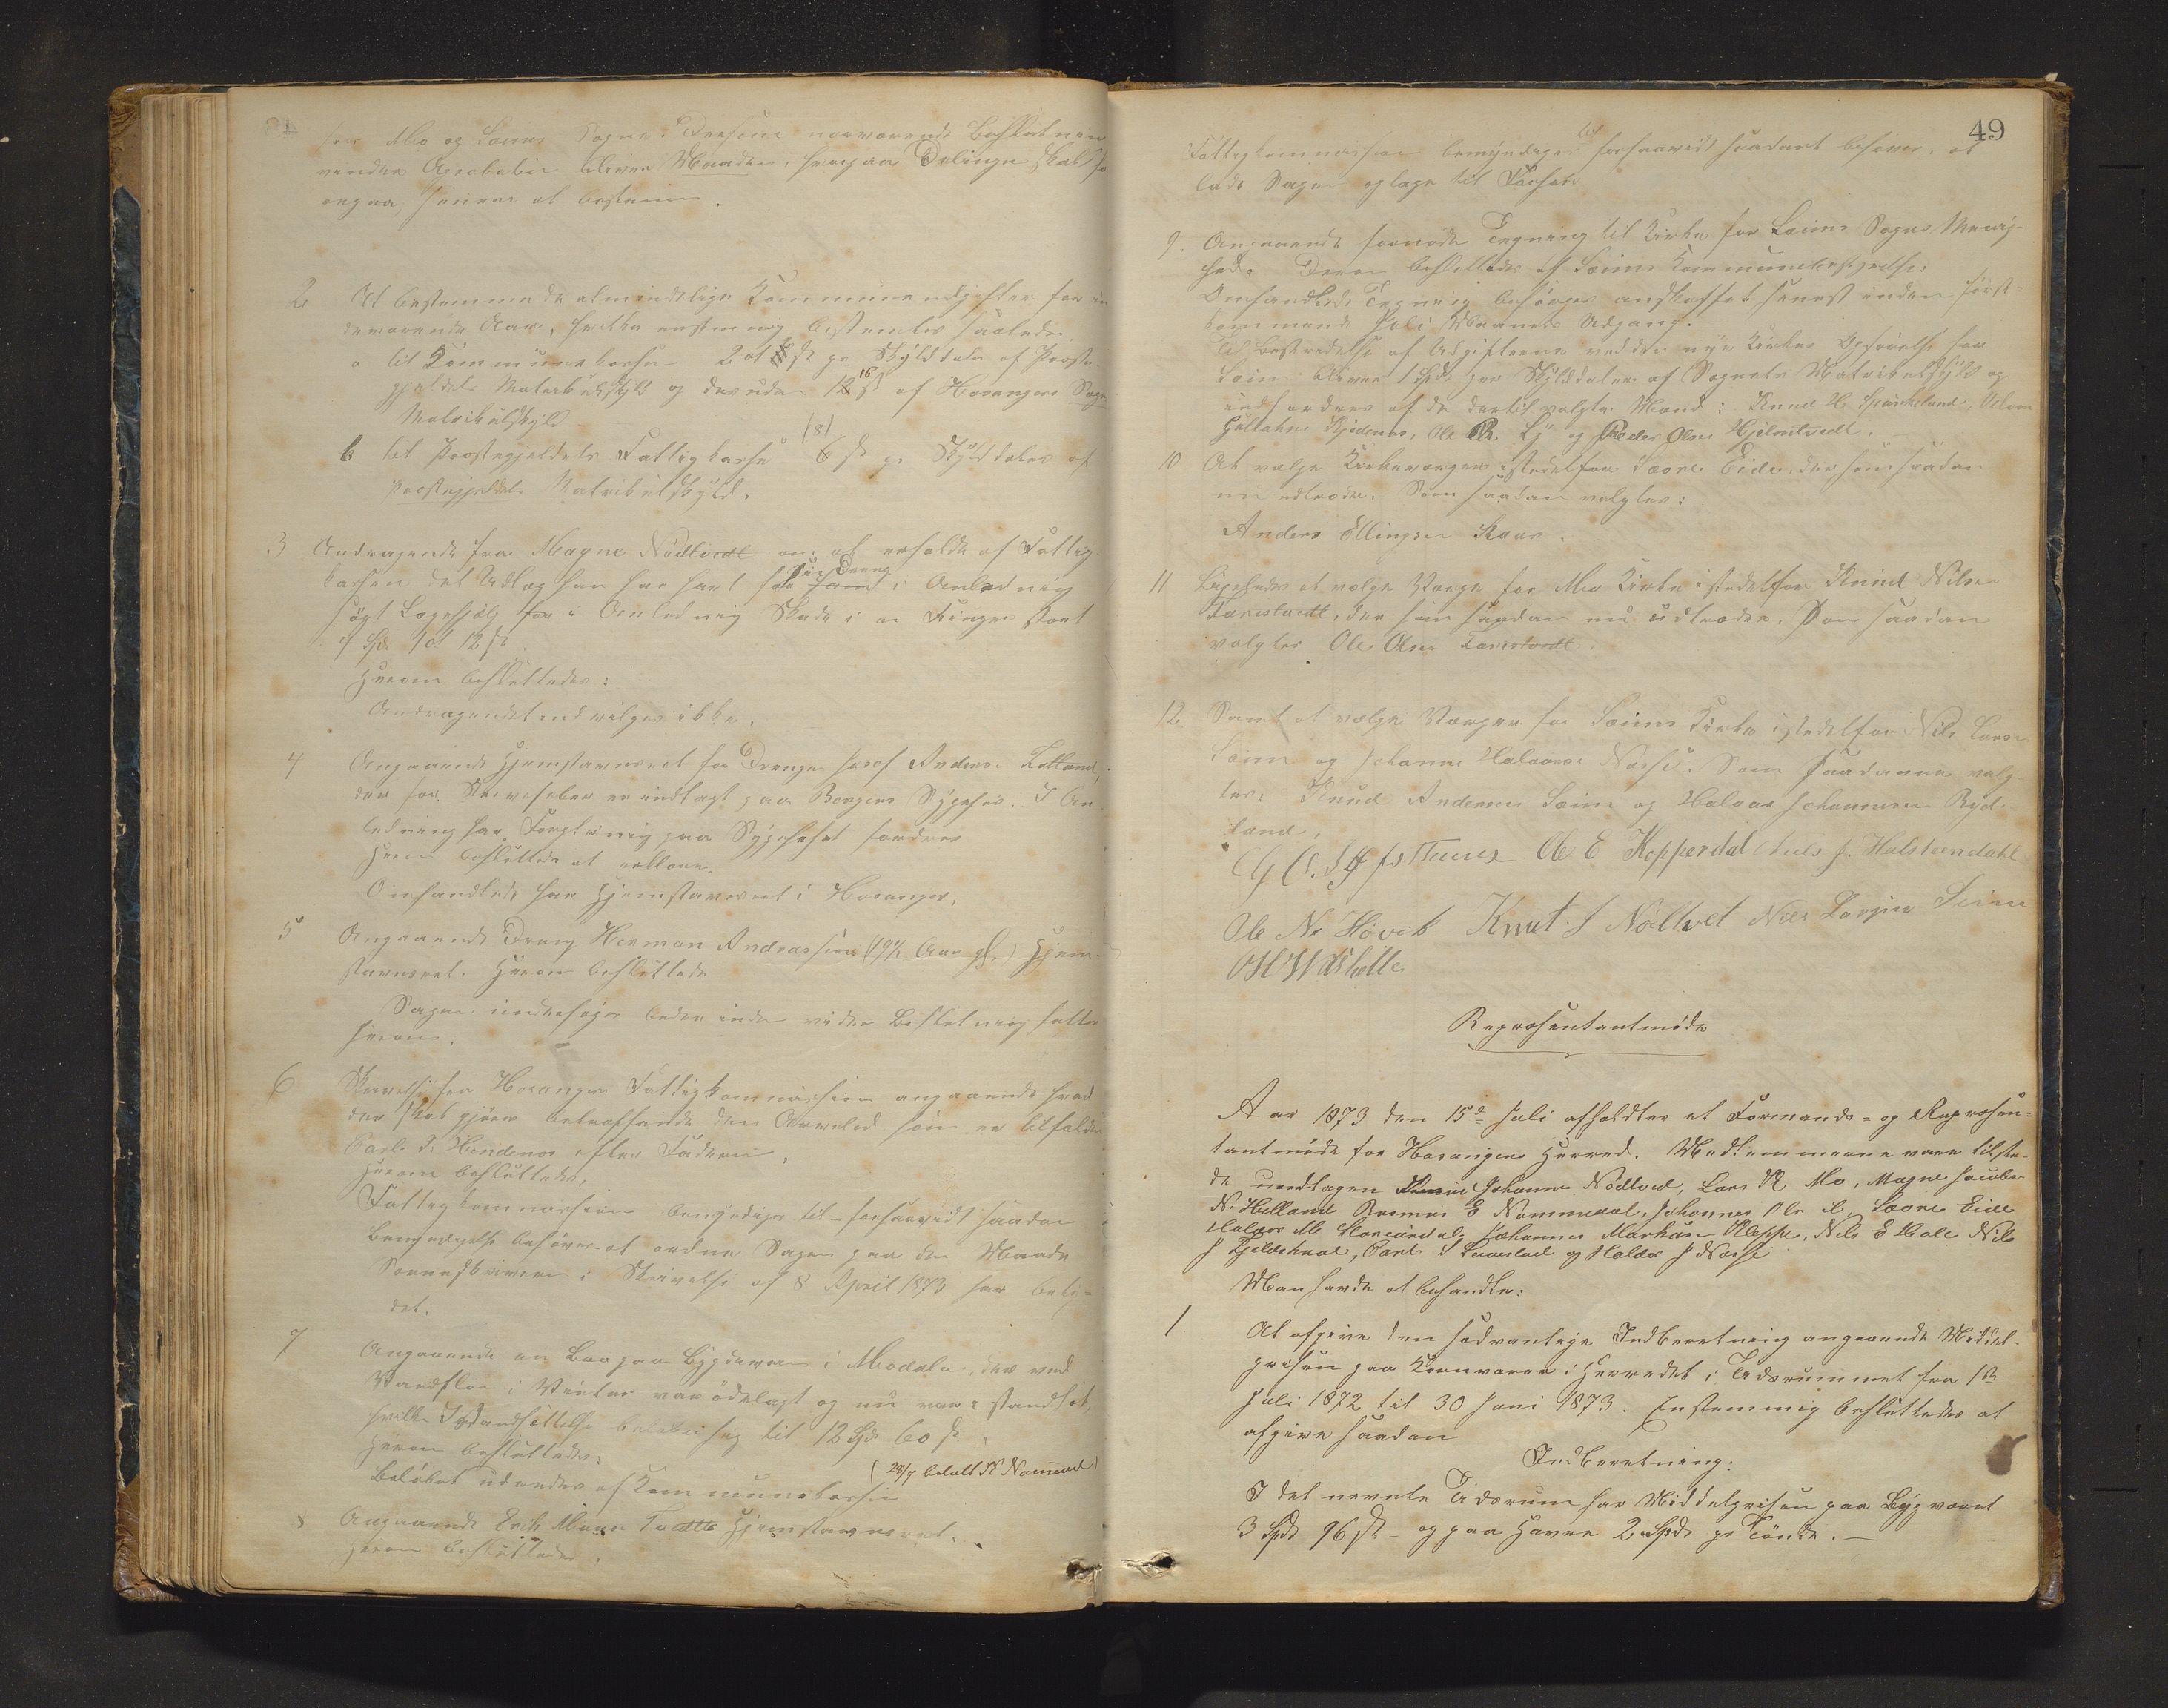 for Mo og Sæims Sogne. Dersom nærværende Beslutning
vinder Approbation bliver Maaden, hvorpaa Delingen skal fo-
regaa, senere at bestemme.
2 At bestemme de almindelige Kommuneudgifter for in-
deværende Aar, hvilke enstemmig bestemtes saaledes
a til Kommunekassen 2 ort ß pr Skylddaler af Præste-
gjeldets Matrikulskyld og desuden 16 ß af Hosangers Sogns
Matrikulskyld
b til Præstegjeldets Fattigkasse (8) 6 ß pr Skylddaler af
Præstegjeldets Matrikulskyld.
3 Andragende fra Magne Nödtvedt om at erholde af Fattig-
kassen det Udlæg han har havt for sin Dreng i Anledning
søgt Lægehjælp for i Anledning Skade i en Finger stort
7 Spd. 1 ort 12 ß
Herom besluttedes:
Andragendet indvilges ikke.
4 Angaaende Hjemstavnsret for Drengen Josef Andersen Lalland,
der for Nervefeber er indlagt paa Bergens Sygehus. I An-
ledning har Forpleining paa Sygehuset fordres
Herom besluttedes at erklære.
Omhandlede har Hjemstavnsret i Hosanger.
5 Angaaende Dreng Herman Andreassens (19½ Aar gl.) Hjem-
stavnsret. Herom besluttedes
Sagen undersøges bedre inden videre Beslutning fattes
herom.
6 Skrivelse fra Hosangers Fattigkommission angaaende hvad
der skal gjøres betræffende den Arvelod som er tilfalden
Carl A. Hindenes efter Faderen.
Herom besluttedes:
Fattigkommissionen bemyndiges til - forsaavidt saadan
Bemyndigelse behøves - at ordne Sagen paa den Maade
Sorenskriveren i Skrivelse af 8 April 1873 har bety-
det.
7 Angaaende en Bro paa Bygdeveien i Modalen, der ved
Vandflom i Vinter var ödelagt og nu var istandsat,
hvilken Istandsættelse beløber sig til 12 Spd. 60 ß.
Herom besluttedes:
(28/7 betalt N Nammedal)
Beløbet udredes af Kommunekassen
8 Angaaende Erik Monsen Tvedtes Hjemstavnsret.
Herom besluttedes.
49
Fattigkommissionen bemyndiges til forsaavidt saadant behøves, at
lade Sagen oplage til Forhør
9. Angaaende fornøden Tegning til Kirke for Sæims Sogns Menig-
hed. Derom besluttedes af Sæims Kommunebestyrelse:
Omhandlede Tegning besørges anskaffet senest inden först-
kommende Juli Maaneds Udgang.
Til Bestridelse af Udgifterne ved den nye Kirkes Opførelse for
Sæim bliver 1 Spd. pr Skylddaler af Sognets Matrikelskyld og
indfordres af de dertil valgte Mænd: Knud H. Sparkeland, Villom
Hallesen Kjidenes, Ole Ej og Peder Olsen Hjelmtvedt.
10 At vælge Kirkeværger istedetfor Laore Eide, der som saadan
nu udtræder. Som saadan valgtes:
Anders Ellingsen Raas.
11 Ligeledes at vælge Værge for Mo Kirke istedetfor Knud Nilsen
Farestvedt, der som saadan nu udtræder. Som saadan
valgtes Ole Olsen Farestvedt.
12 Samt at vælge Værger for Sæims Kirke istedetfor Nils Larsen
Sæim og Johannes Halvorsen Næse. Som saadanne valg-
tes: Knud Andersen Sæim og Halvor Johannesen Ryd-
land.
Ole E Kopperdal Nils J. Halsteendahl
Ole Ns Hövik Knut J Nödtvet Nils Larsen Seim
Repræsentantmöde
Aar 1873 den 15de Juli afholdtes et Formands- og Repræsen-
tantmöde for Hosangers Herred. Medlemmerne vare tilste-
de undtagen Johannes Nödtved, Lars K Mo, Magne Jacobsen
N. Helland Rasmus E Nammedal, Johannes Olsen Laore Eide
Holger M Johannes Markusen Kleppe, Nils E Bale Nils
J Tjeldstveal, Carl og Haldor J Næse
Man havde at behandle:
1 At afgive den sædvanlige Indberetning angaaende Middel-
prisen paa Kornvarer i Herredet i Tidsrummet fra 1ste
Juli 1872 til 30 Juni 1873. Enstemmig besluttedes at
afgive saadan
Indberetning:
I det nævnte Tidsrum har Middelprisen paa Byg været
3 Spd 96 ß - og paa Havre 2 Spd pr Tönde. -